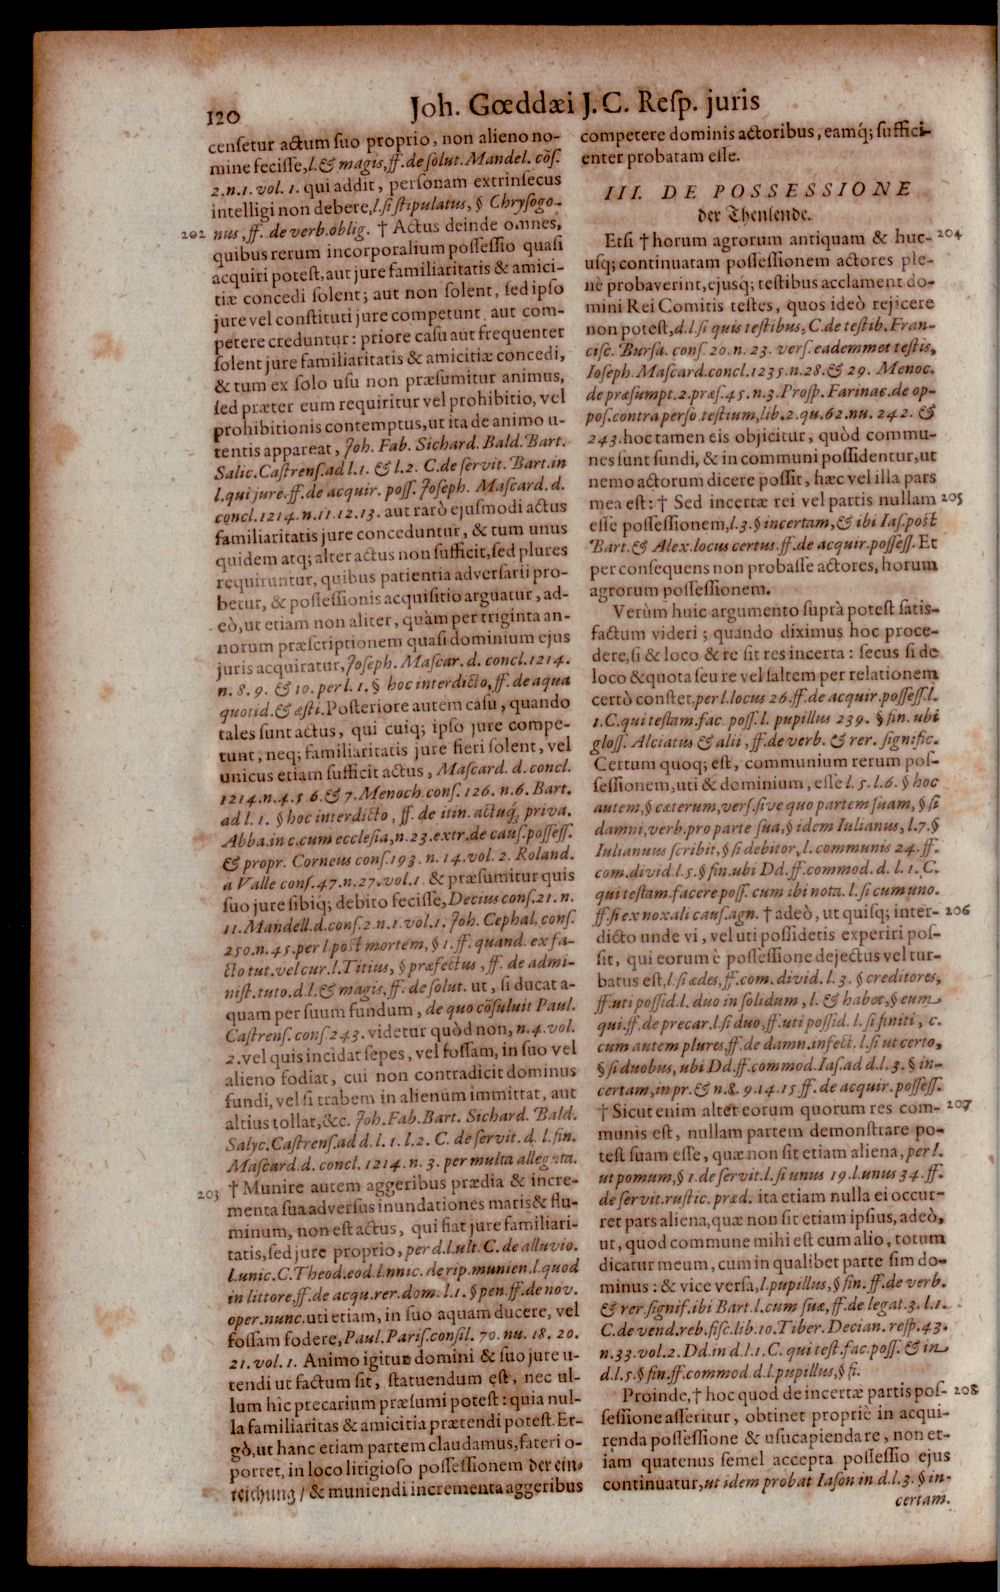 120
Joh. Gœddæi J.C. Reſp. juris
cenſetur actum ſuo proprio, non alieno no-
mine feciſſe, l. & magis, ff. de ſolut. Mandel. cõſ.
2. n. 1. vol. 1. qui addit, perſonam extrinſecus
intelligi non debere, l. ſi ſtipulatus, § Chryſogo-
202 nus, ff. de verb. oblig. † Actus deinde omnes,
quibus rerum incorporalium poſſeſſio quaſi
acquiri poteſt, aut jure familiaritatis & amici-
tiæ concedi ſolent; aut non ſolent, ſed ipſo
jure vel conſtituti jure competunt aut com-
petere creduntur: priore caſu aut frequenter
ſolent jure familiaritatis & amicitiæ concedi,
& tum ex ſolo uſu non præſumitur animus,
ſed præter eum requiritur vel prohibitio, vel
prohibitionis contemptus, ut ita de animo u-
tentis appareat, Joh. Fab. Sichard. Bald. Bart.
Salic. Caſtrenſ. ad l. 1. & l. 2. C. de ſervit. Bart. in
l. qui jure. ff. de acquir. poſſ. Joſeph. Maſcard. d.
concl. 1214. n. 11. 12. 13. aut rarò ejuſmodi actus
familiaritatis jure conceduntur, & tum unus
quidem atq; alter actus non ſufficit, ſed plures
requiruntur, quibus patientia adverſarii pro-
betur, & poſſeſſionis acquiſitio arguatur, ad-
eò, ut etiam non aliter, quàm per triginta an-
norum præſcriptionem quaſi dominium ejus
juris acquiratur, Joſeph. Maſcar. d. concl. 1214.
n. 8. 9. & 10. per l. 1. § hoc interdicto, ff. de aqua
quotid. & æſti. Poſteriore autem caſu, quando
tales ſunt actus, qui cuiq; ipſo jure compe-
tunt, neq; familiaritatis jure fieri ſolent, vel
unicus etiam ſufficit actus, Maſcard. d. concl.
1214. n. 4. 5 6. & 7. Menoch. conſ. 126. n. 6. Bart.
ad l. 1. § hoc interdicto, ff. de itin. actuq; priva.
Abba. in c. cum eccleſia, n. 23. extr. de cauſ. poſſeſſ.
& propr. Corneus conſ. 193. n. 14. vol. 2. Roland.
a Valle conſ. 47. n. 27. vol. 1. & præſumitur quis
ſuo jure ſibiq; debito feciſſe, Decius conſ. 21. n.
11. Mandell. d. conſ. 2. n. 1. vol. 1. Joh. Cephal. conſ.
250. n. 45. per l post mortem, § 1. ff. quand. ex fa-
cto tut. vel cur. l. Titius, § præfectus, ff. de admi-
niſt. tuto. d. l. & magis, ff. de ſolut. ut, ſi ducat a-
quam per ſuum fundum, de quo cõſuluit Paul.
Caſtrenſ. conſ. 243. videtur quòd non, n. 4. vol.
2. vel quis incidat ſepes, vel foſſam, in ſuo vel
alieno fodiat, cui non contradicit dominus
fundi, vel ſi trabem in alienum immittat, aut
altius tollat, &c. Joh. Fab. Bart. Sichard. Bald.
Salyc. Caſtrenſ. ad d. l. 1. l. 2. C. de ſervit. d. l. fin.
Maſcard. d. concl. 1214. n. 3. per multa allegata.
203 † Munire autem aggeribus prædia & incre-
menta ſua adverſus inundationes maris & flu-
minum, non eſt actus, qui fiat jure familiari-
tatis, ſed jure proprio, per d. l. ult. C. de alluvio.
l. unic. C. Theod. eod. l. nnic. de rip. munien. l. quod
in littore, ff. de acqu. rer. dom. l. 1. § pen. ff. de nov.
oper. nunc. uti etiam, in ſuo aquam ducere, vel
foſſam fodere, Paul. Pariſ. conſil. 70. nu. 18. 20.
21. vol. 1. Animo igitur domini & ſuo jure u-
tendi ut factum ſit, ſtatuendum eſt, nec ul-
lum hic precarium præſumi poteſt: quia nul-
la familiaritas & amicitia prætendi poteſt. Er-
gò, ut hanc etiam partem claudamus, fateri o-
portet, in loco litigioſo poſſeſſionem der ein-
teichung / & muniendi incrementa aggeribus
competere dominis actoribus, eamq́; ſuffici-
enter probatam eſſe.
III. DE POSSESSIONE
der Thenſende.
Etſi † horum agrorum antiquam & huc- 204
uſq; continuatam poſſeſſionem actores ple-
nè probaverint, ejuſq́; teſtibus acclament do-
mini Rei Comitis teſtes, quos ideò rejicere
non poteſt, d. l. ſi quis teſtibus, C. de teſtib. Fran-
ciſc. Burſa. conſ. 20. n. 23. verſ. eademmet teſtis,
Ioſeph. Maſcard. concl. 1235. n. 28. & 29. Menoc.
de præſumpt. 2. præſ. 45. n. 3. Proſp. Farinac. de op-
poſ. contra perſo. teſtium, lib. 2. qu. 62. nu. 242. &
243. hoc tamen eis objicitur, quòd commu-
nes ſunt fundi, & in communi poſſidentur, ut
nemo actorum dicere poſſit, hæc vel illa pars
mea est: † Sed incertæ rei vel partis nullam 205
eſſe poſſeſſionem, l. 3. § incertam, & ibi Iaſ. post
Bart. & Alex. locus certus. ff. de acquir. poſſeſſ. Et
per conſequens non probaſſe actores, horum
agrorum poſſeſſionem.
Verùm huic argumento ſuprà poteſt ſatis-
factum videri; quando diximus hoc proce-
dere, ſi & loco & re ſit res incerta: ſecus ſi de
loco & quota ſeu re vel ſaltem per relationem
certò conſtet, per l. locus 26. ff. de acquir. poſſeſſ. l.
1. C. qui teſtam. fac. poſſ. l. pupillus 239. § fin. ubi
gloſſ. Alciatus & alii, ff. de verb. & rer. ſignific.
Certum quoq; eſt, communium rerum poſ-
ſeſſionem, uti & dominium, eſſe l. 5. l. 6. § hoc
autem, § cæterum, verſ. ſive quo partem ſuam, § ſi
damni, verb. pro parte ſua, § idem Iulianus, l. 7. §
Iulianuus ſcribit, § ſi debitor, l. communis 24. ff.
com. divid. l. 5. § fin. ubi Dd. ff. commod. d. l. 1. C.
qui teſtam. facere poſſ. cum ibi nota. l. ſi cum uno.
ff. ſi ex noxali cauſ. agn. † adeò, ut quiſq; inter- 206
dicto unde vi, vel uti poſſidetis experiri poſ-
ſit, qui eorum è poſſeſſione dejectus vel tur-
batus eſt, l. ſi ædes, ff. com. divid. l. 3. § creditores,
ff. uti poſſid. l. duo in ſolidum, l. & habet, § eum
qui. ff. de precar. l. ſi duo, ff. uti poſſid. l. ſi finiti, c.
cum autem plures, ff. de damn. infect. l. ſi ut certo,
§ ſi duobus, ubi Dd. ff. commod. Iaſ. ad d. l. 3. § in-
certam, in pr. & n. 8. 9. 14. 15 ff. de acquir. poſſeſſ.
† Sicut enim alter eorum quorum res com- 207
munis eſt, nullam partem demonſtrare po-
teſt ſuam eſſe, quæ non ſit etiam aliena, per l.
ut pomum, § 1. de ſervit. l. ſi unus 19. l. unus 34. ff.
de ſervit. ruſtic. præd. ita etiam nulla ei occur-
ret pars aliena, quæ non ſit etiam ipſius, adeò,
ut, quod commune mihi eſt cum alio, totum
dicatur meum, cum in qualibet parte ſim do-
minus: & vice verſa, l. pupillus, § fin. ff. de verb.
& rer. ſignif. ibi Bart. l. cum ſuæ, ff. de legat. 3. l. 1.
C. de vend. reb. fiſc. lib. 10. Tiber. Decian. reſp. 43.
n. 33. vol. 2. Dd. in d. l. 1. C. qui teſt. fac. poſſ. & in
d. l. 5. § fin. ff. commod. d. l. pupillus, § fi.
Proinde, † hoc quod de incertæ partis poſ- 208
ſeſſione aſſeritur, obtinet propriè in acqui-
renda poſſeſſione & uſucapiendare, non et-
iam quatenus ſemel accepta poſſeſſio ejus
continuatur, ut idem probat Iaſon in d. l. 3. § in-
certam.